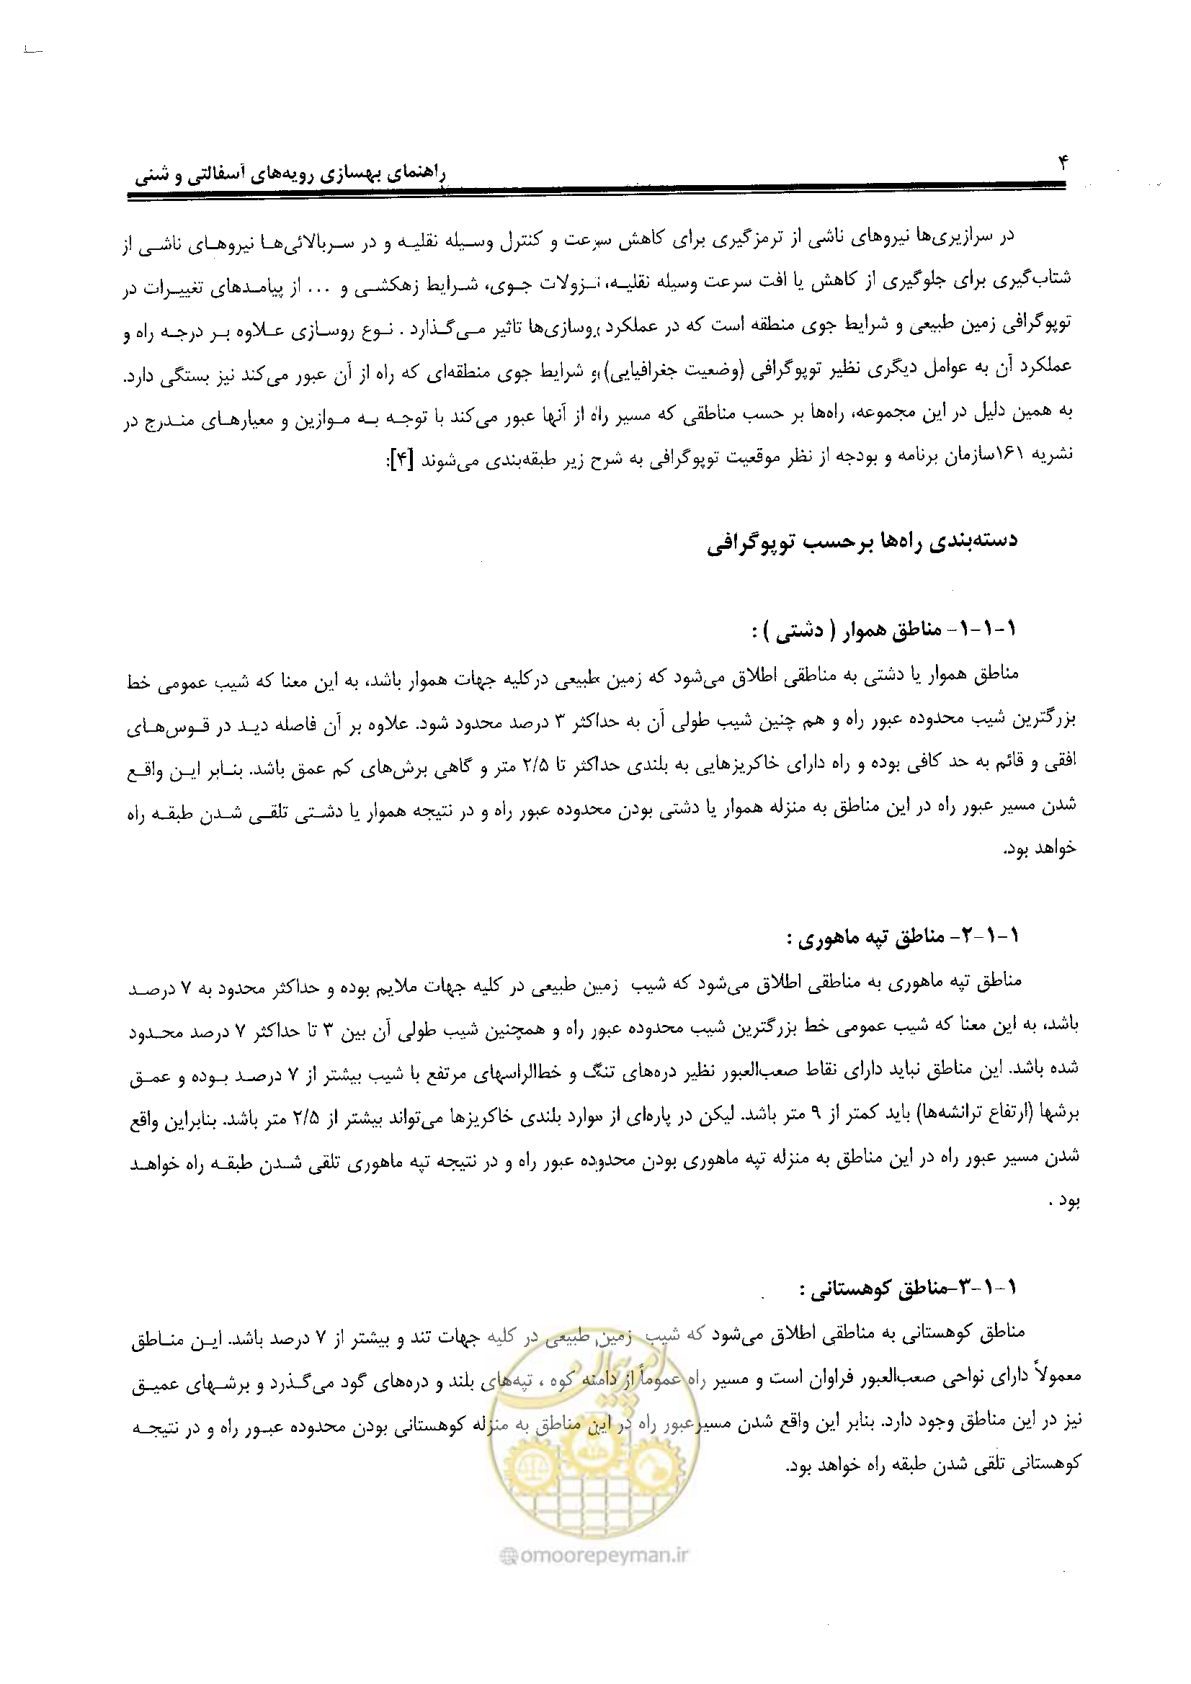 ۴
راهنمای بهسازی رویه‌های آسفالتی و شنی
در سرازیری‌ها نیروهای ناشی از ترمزگیری برای کاهش سرعت و کنترل وسیله نقلیه و در سربالائی‌ها نیروهای ناشی از
شتاب‌گیری برای جلوگیری از کاهش یا افت سرعت وسیله نقلیه، نزولات جوی، شرایط زهکشی و ... از پیامدهای تغییرات در
توپوگرافی زمین طبیعی و شرایط جوی منطقه است که در عملکرد روسازی‌ها تاثیر می‌گذارد . نوع روسازی علاوه بر درجه راه و
عملکرد آن به عوامل دیگری نظیر توپوگرافی (وضعیت جغرافیایی) و شرایط جوی منطقه‌ای که راه از آن عبور می‌کند نیز بستگی دارد.
به همین دلیل در این مجموعه، راه‌ها بر حسب مناطقی که مسیر راه از آنها عبور می‌کند با توجه به موازین و معیارهای مندرج در
نشریه ۱۶۱سازمان برنامه و بودجه از نظر موقعیت توپوگرافی به شرح زیر طبقه‌بندی می‌شوند [۴]:
دسته‌بندی راه‌ها برحسب توپوگرافی
۱-۱-۱- مناطق هموار ( دشتی ) :
مناطق هموار یا دشتی به مناطقی اطلاق می‌شود که زمین طبیعی درکلیه جهات هموار باشد، به این معنا که شیب عمومی خط
بزرگترین شیب محدوده عبور راه و هم چنین شیب طولی آن به حداکثر ۳ درصد محدود شود. علاوه بر آن فاصله دید در قوس‌های
افقی و قائم به حد کافی بوده و راه دارای خاکریزهایی به بلندی حداکثر تا ۲/۵ متر و گاهی برش‌های کم عمق باشد. بنابر این واقع
شدن مسیر عبور راه در این مناطق به منزله هموار یا دشتی بودن محدوده عبور راه و در نتیجه هموار یا دشتی تلقی شدن طبقه راه
خواهد بود.
۱-۱-۲- مناطق تپه ماهوری :
مناطق تپه ماهوری به مناطقی اطلاق می‌شود که شیب زمین طبیعی در کلیه جهات ملایم بوده و حداکثر محدود به ۷ درصد
باشد، به این معنا که شیب عمومی خط بزرگترین شیب محدوده عبور راه و همچنین شیب طولی آن بین ۳ تا حداکثر ۷ درصد محدود
شده باشد. این مناطق نباید دارای نقاط صعب‌العبور نظیر دره‌های تنگ و خط‌الراسهای مرتفع با شیب بیشتر از ۷ درصد بوده و عمق
برشها (ارتفاع ترانشه‌ها) باید کمتر از ۹ متر باشد. لیکن در پاره‌ای از موارد بلندی خاکریزها می‌تواند بیشتر از ۲/۵ متر باشد. بنابراین واقع
شدن مسیر عبور راه در این مناطق به منزله تپه ماهوری بودن محدوده عبور راه و در نتیجه تپه ماهوری تلقی شدن طبقه راه خواهد
بود .
۱-۱-۳-مناطق کوهستانی :
مناطق کوهستانی به مناطقی اطلاق می‌شود که شیب زمین طبیعی در کلیه جهات تند و بیشتر از ۷ درصد باشد. این مناطق
معمولاً دارای نواحی صعب‌العبور فراوان است و مسیر راه عموماً از دامنه کوه ، تپه‌های بلند و دره‌های گود می‌گذرد و برشهای عمیق
نیز در این مناطق وجود دارد. بنابر این واقع شدن مسیرعبور راه در این مناطق به منزله کوهستانی بودن محدوده عبور راه و در نتیجه
کوهستانی تلقی شدن طبقه راه خواهد بود.
امور پیمان
@omoorepeyman.ir